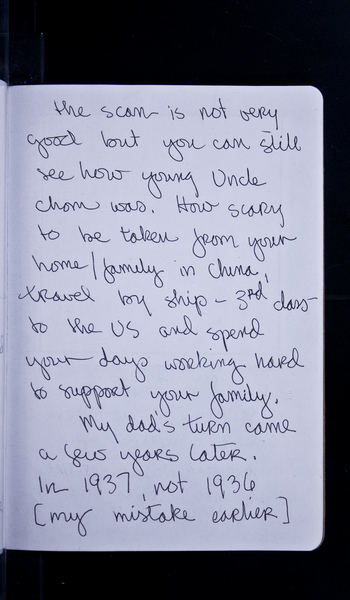 the scan is not very
good but you can still
see how young Uncle
Chom was. How scary
to be taken from your
home/family in China,
travel by ship – 3rd class
to the US and spend
your days working hard
to support your family.
My dad's turn came
a few years later.
In 1937, not 1936
[my mistake earlier]